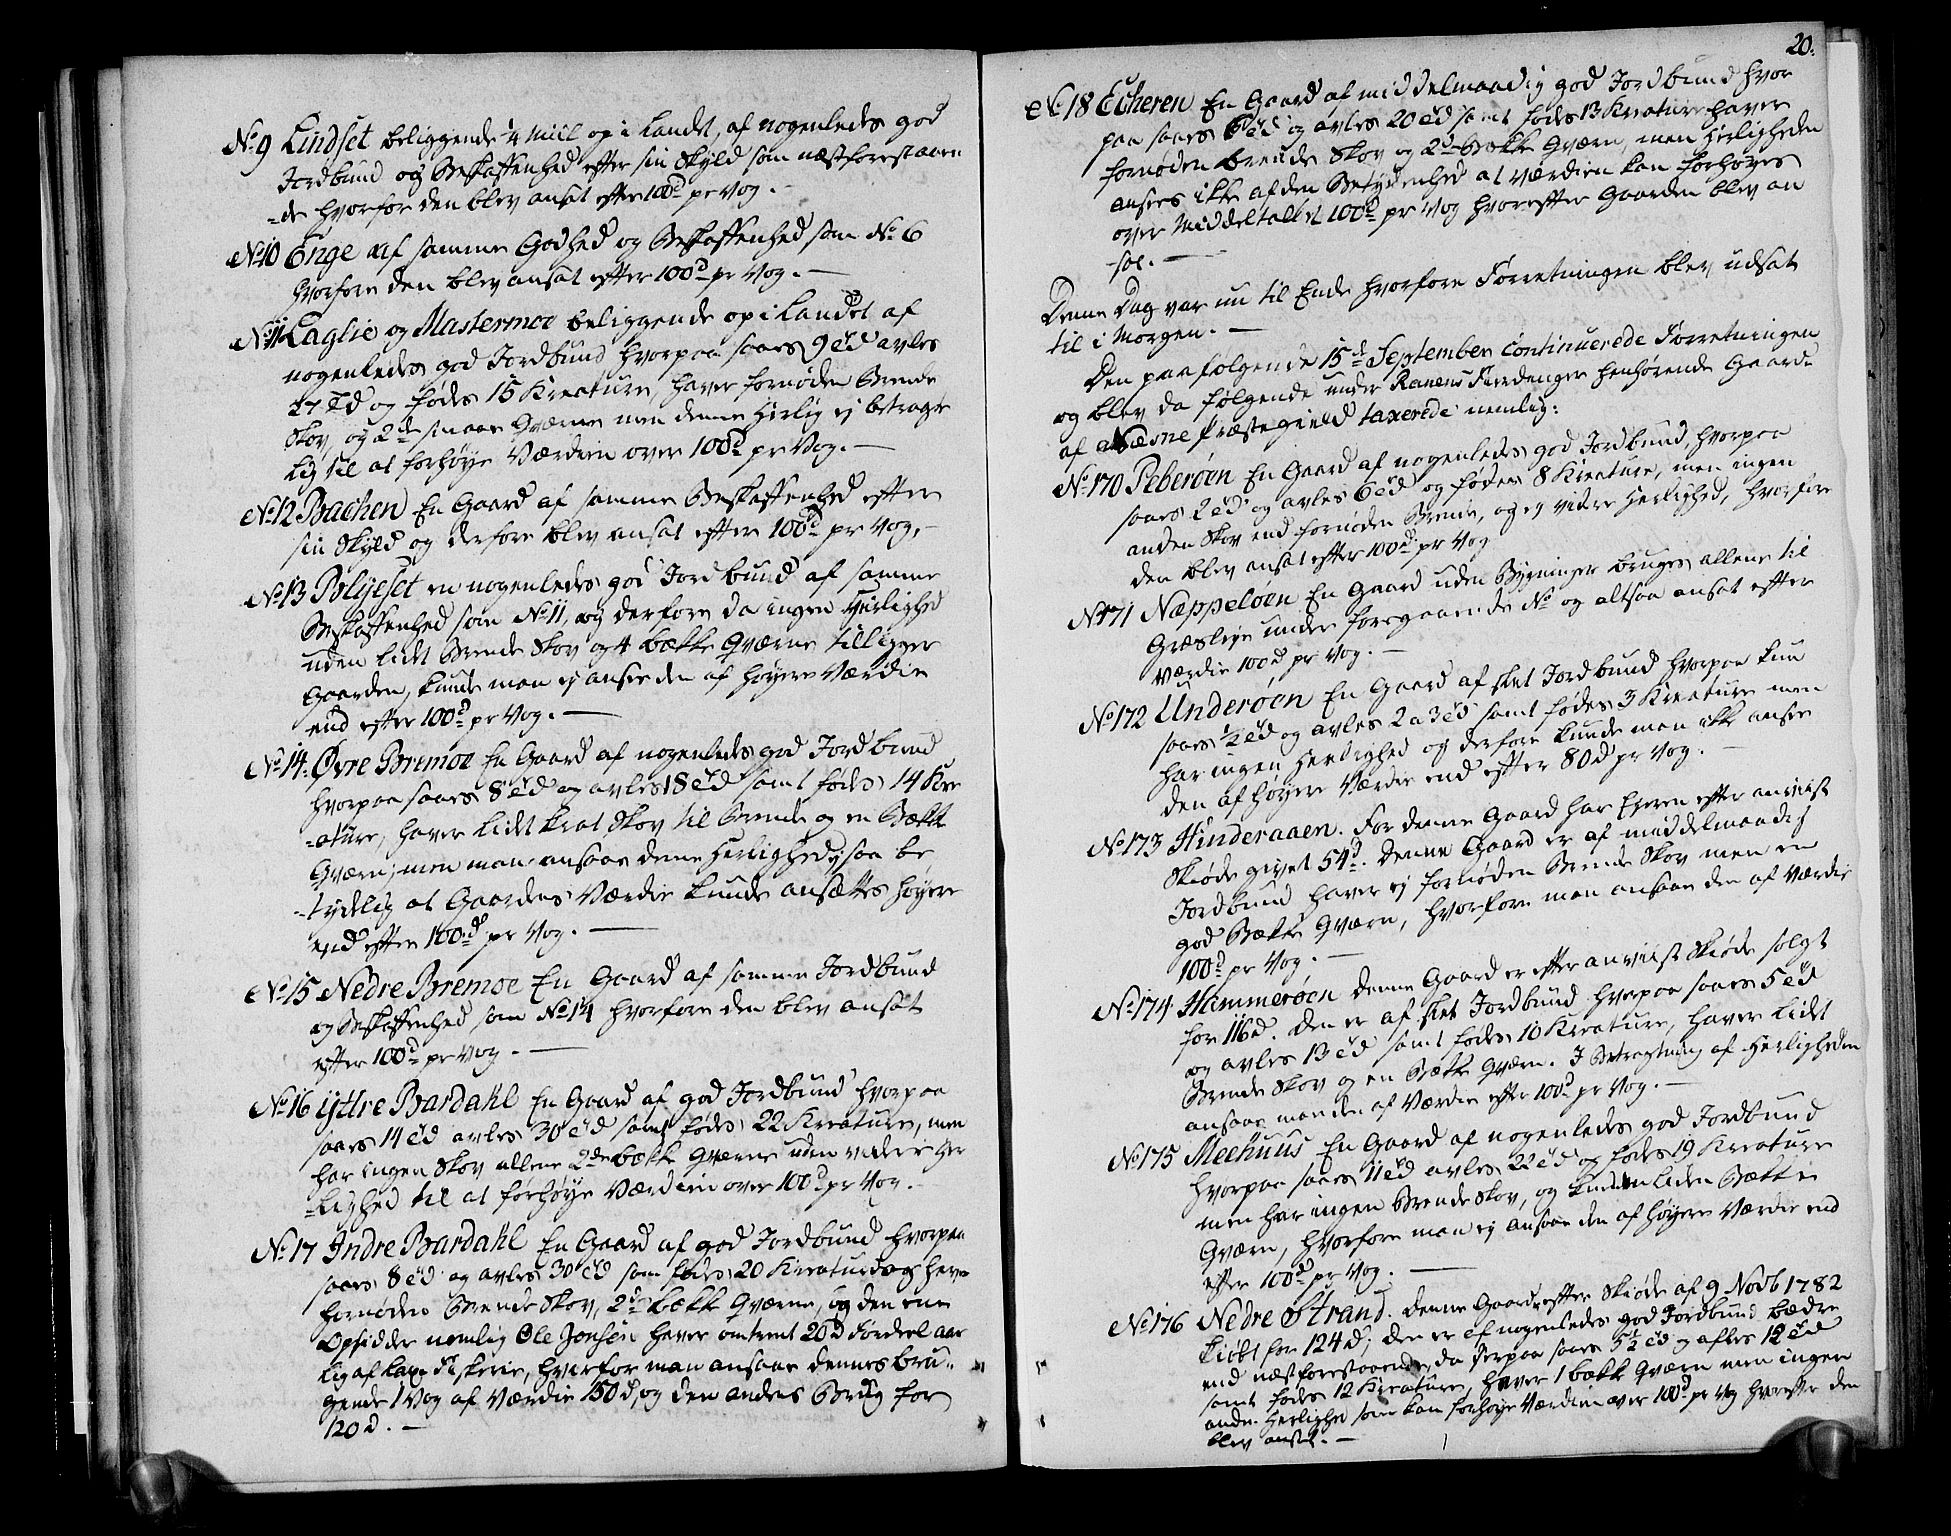 No 9 Lindset beliggende ¼ Miil op i Landet, af nogenledes god
Jordbund og Beskaffenhed efter sin Skyld som næstforestaaen-
-de hvorfor den blev ansat efter 100d pr Vog. —
No 10 Enge af samme Godhed og Beskaffenhed som No 6
hvorfore den blev ansat efter 100d pr Vog. —
No 11 Laglie og Mastermoe beliggende op i Landet af
nogenledes god Jordbund hvorpaa saaes 9 Td avles
27 Td og fødes 15 Kreature, haver fornøden Brende
Skov, og 2de smaae Qværne men denne Herlig ej betragte
lig til at forhøye Værdien over 100d pr Vog. —
No 12 Bachen En Gaard af samme Beskaffenhed efter
sin Skyld og derfore blev ansat efter 100d pr Vog. —
No 13 Bolyeset en nogenledes god Jordbund af samme
Beskaffenhed som No 11, og derfore da ingen Herlighed
uden lidt Brende Skov og 4 bække Qværne tilligger
Gaarden, kunde man ej ansee den af høyere Værdie
end efter 100d pr Vog. —
No 14. Øvre Bremoe En Gaard af nogenledes god Jordbund
hvorpaa saaes 8 Td og avles 18 Td samt fødes 14 Kre
-ature, haver lidt krat Skov til Brende og en Bække
Qværn, men man ansaae denne Herlighed ej saa be
-tydelig at Gaardens Værdie kunde ansættes høyere
end efter 100d pr Vog. —
No 15 Nedre Bremoe En Gaard af samme Jordbund
og Beskaffenhed som No 14 hvorfore den blev ansat
efter 100d pr Vog. —
No 16 Yttre Bardahl En Gaard af god Jordbund hvorpaa
saaes 14 Td avles 30 Td samt fødes 22 Kreature, men
har ingen Skov allene 2de bække Qværne uden videre Her
-lighed til at forhøye Værdien over 100d pr Vog. —
No 17 Indre Bardahl En Gaard af god Jordbund hvorpaa
saaes 8 Td og avles 30 Td som fødes 20 Kreature og haver
fornøden Brende Skov, 2de bække Qværne, og den ene
Opsidder nemlig Ole Jonsen haver omtrent 20d Fordeel aar
lig af Laxe Fiskerie, hvorfor man ansaae dennes bru-
gende 1 Vog af Værdie 150d, og den andens Brug for
120d. —
20.
No 18 Echeren En Gaard af middelmaadig god Jordbund hvor
paa saaes 6 Td og avles 20 Td samt fødes 13 Kreature haver
fornøden brende Skov og 2de Bække Qværn, men Herligheden
ansees ikke af den Betydenhed at Værdien kan forhøyes
over Middeltallet 100d pr Vog hvorefter Gaarden blev an
-sat. —
Denne Dag var nu til Ende hvorfore Forretningen blev udsat
til i Morgen. —
Den paafølgende 15d September Continuerede Forretningen
og blev da følgende under Ranens Fierdinger henhørende Gaarde
af Næsne Præstegield taxerede nemlig:
No 170 Peberøen En Gaard af nogenledes god Jordbund, hvorpaa
saaes 2 Td og avles 6 Td og føder 8 Kreature, men ingen
anden Skov end fornøden Brende, og ej videre Herlighed, hvorfore
den blev ansat efter 100d pr Vog
No 171 Næppeløen En Gaard uden Bygninger bruges allene til
Græsleye under foregaaende No og altsaa ansat efter
Værdie 100d pr Vog. —
No 172 Underøen En Gaard af slet Jordbund hvorpaa kun
saaes ½ Td og avles 2 a 3 Td samt fødes 3 Kreature men
har ingen Herlighed og derfore kunde man ikke ansee
den af høyere Værdie end efter 80d pr Vog. —
No 173 Hinderaaen. For denne Gaard har Ejeren efter anviist
Skiøde givet 54d. Denne Gaard er af middelmaadig
Jordbund haver ej fornøden Brende Skov men en
god Bække Qværn, hvorfore man ansaae den af Værdie
100d pr Vog. —
No 174 Hammerøen Denne Gaard er efter anviist Skiøde solgt
for 116d. Den er af slet Jordbund hvorpaa saaes 5 Td
og avles 13 Td samt fødes 10 Kreature, haver lidt
Brende Skov og en Bække Qværn. I Betragtning af Herligheden
ansaae man den af Værdie efter 100d pr Vog. —
No 175 Meehuus En Gaard af nogenledes god Jordbund
hvorpaa saaes 11 Td avles 22 Td og fødes 19 Kreature
men har ingen Brende Skov, og kun en liden Bække
Qværn, hvorfore man ej ansaae den af høyere Værdie end
efter 100d pr Vog. —
No 176 Nedre Strand. Denne Gaard er efter Skiøde af 9 Novb 1782
kiøbt for 124d; den er af nogenledes god Jordbund bædre
end næstforestaaende, da herpaa saaes 5½ Td og afles 12 Td
samt fødes 12 Kreature, haver 1 bække Qværn men ingen
anden Herlighed som kan forhøye Værdien over 100d pr Vog hvorefter den
blev ansat. —